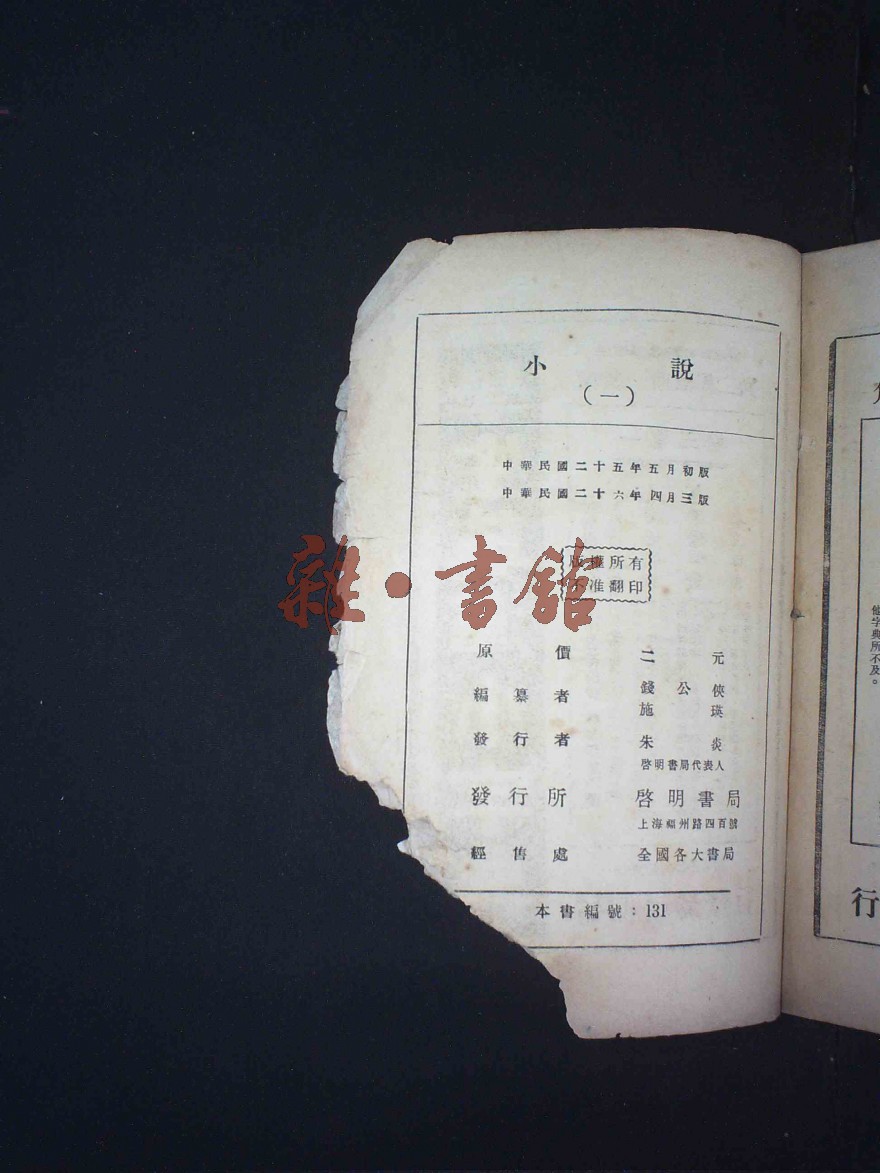 小說
（一）
中華民國二十五年五月初版
中華民國二十六年四月三版
版權所有
不准翻印
原價 二元
編纂者 錢公俠
施瑛
發行者 朱炎
啓明書局代表人
發行所 啓明書局
上海福州路四百號
經售處 全國各大書局
本書編號：131
雜·書館
他字典所不及。
行